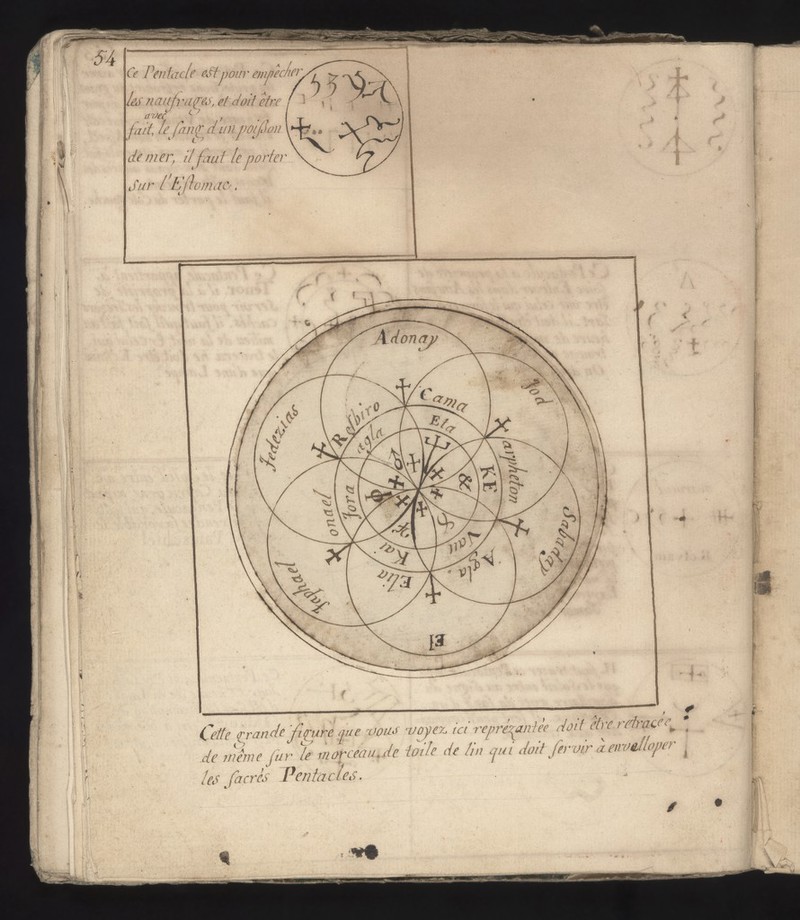 54
Ce Pentacle est pour empêcher
les naufrages, et doit être
avec
fait, le sang d'un poisson
de mer, il faut le porter
sur l'Estomac.
Adonay
Jod
Sabaday
El
Japhael
Jedezias
Cama
arpheton
Agla
Elia
onael
Resbiro
Eta
KE
Vau
Kai
Jora
agla
&
Cette grande figure que vous voyez ici reprézantée doit être retracée
de même sur le morceau de toile de lin qui doit servir à envelloper
les sacrés Pentacles.